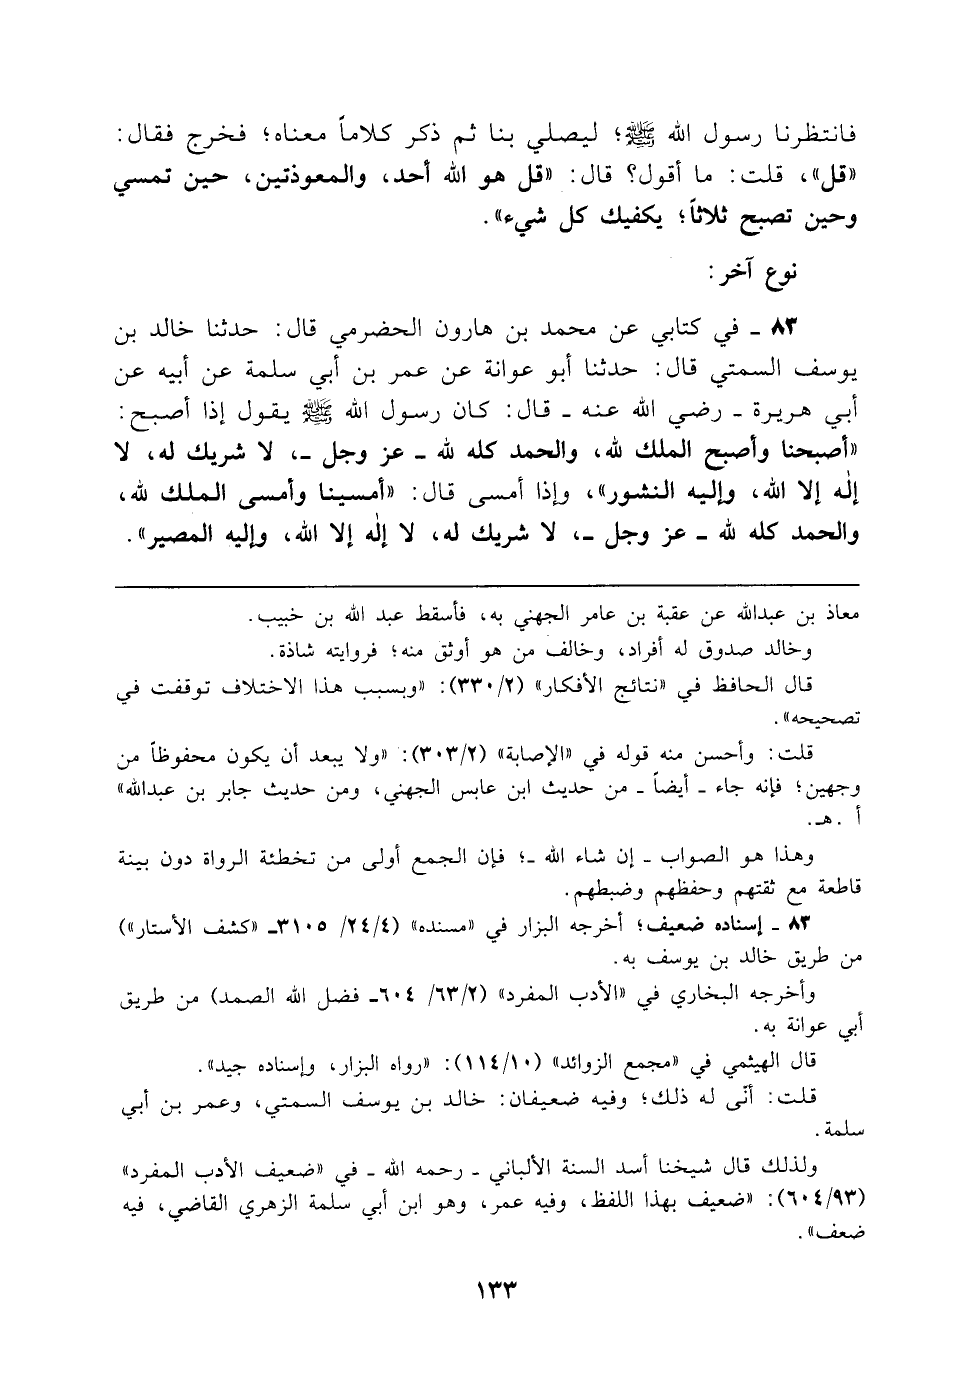 فانتظرنا رسول الله ﷺ؛ ليصلي بنا ثم ذكر كلاماً معناه؛ فخرج فقال:
«قل»، قلت: ما أقول؟ قال: «قل هو الله أحد، والمعوذتين، حين تمسي
وحين تصبح ثلاثاً؛ يكفيك كل شيء».
نوع آخر:
٨٣ ـ في كتابي عن محمد بن هارون الحضرمي قال: حدثنا خالد بن
يوسف السمتي قال: حدثنا أبو عوانة عن عمر بن أبي سلمة عن أبيه عن
أبي هريرة ـ رضي الله عنه ـ قال: كان رسول الله ﷺ يقول إذا أصبح:
«أصبحنا وأصبح الملك لله، والحمد كله لله ـ عز وجل ـ، لا شريك له، لا
إلٰه إلا الله، وإليه النشور»، وإذا أمسى قال: «أمسينا وأمسى الملك لله،
والحمد كله لله ـ عز وجل ـ، لا شريك له، لا إلٰه إلا الله، وإليه المصير».
معاذ بن عبدالله عن عقبة بن عامر الجهني به، فأسقط عبد الله بن خبيب.
وخالد صدوق له أفراد، وخالف من هو أوثق منه؛ فروايته شاذة.
قال الحافظ في «نتائج الأفكار» (٣٣٠/٢): «وبسبب هذا الاختلاف توقفت في
تصحيحه».
قلت: وأحسن منه قوله في «الإصابة» (٣٠٣/٢): «ولا يبعد أن يكون محفوظاً من
وجهين؛ فإنه جاء ـ أيضاً ـ من حديث ابن عابس الجهني، ومن حديث جابر بن عبدالله»
أ .هـ.
وهذا هو الصواب ـ إن شاء الله ـ؛ فإن الجمع أولى من تخطئة الرواة دون بينة
قاطعة مع ثقتهم وحفظهم وضبطهم.
٨٣ ـ إسناده ضعيف؛ أخرجه البزار في «مسنده» (٢٤/٤/ ٣١٠٥ـ «كشف الأستار»)
من طريق خالد بن يوسف به.
وأخرجه البخاري في «الأدب المفرد» (٦٣/٢/ ٦٠٤ـ فضل الله الصمد) من طريق
أبي عوانة به.
قال الهيثمي في «مجمع الزوائد» (١١٤/١٠): «رواه البزار، وإسناده جيد».
قلت: أنّى له ذلك؛ وفيه ضعيفان: خالد بن يوسف السمتي، وعمر بن أبي
سلمة.
ولذلك قال شيخنا أسد السنة الألباني ـ رحمه الله ـ في «ضعيف الأدب المفرد»
(٦٠٤/٩٣): «ضعيف بهذا اللفظ، وفيه عمر، وهو ابن أبي سلمة الزهري القاضي، فيه
ضعف».
١٣٣